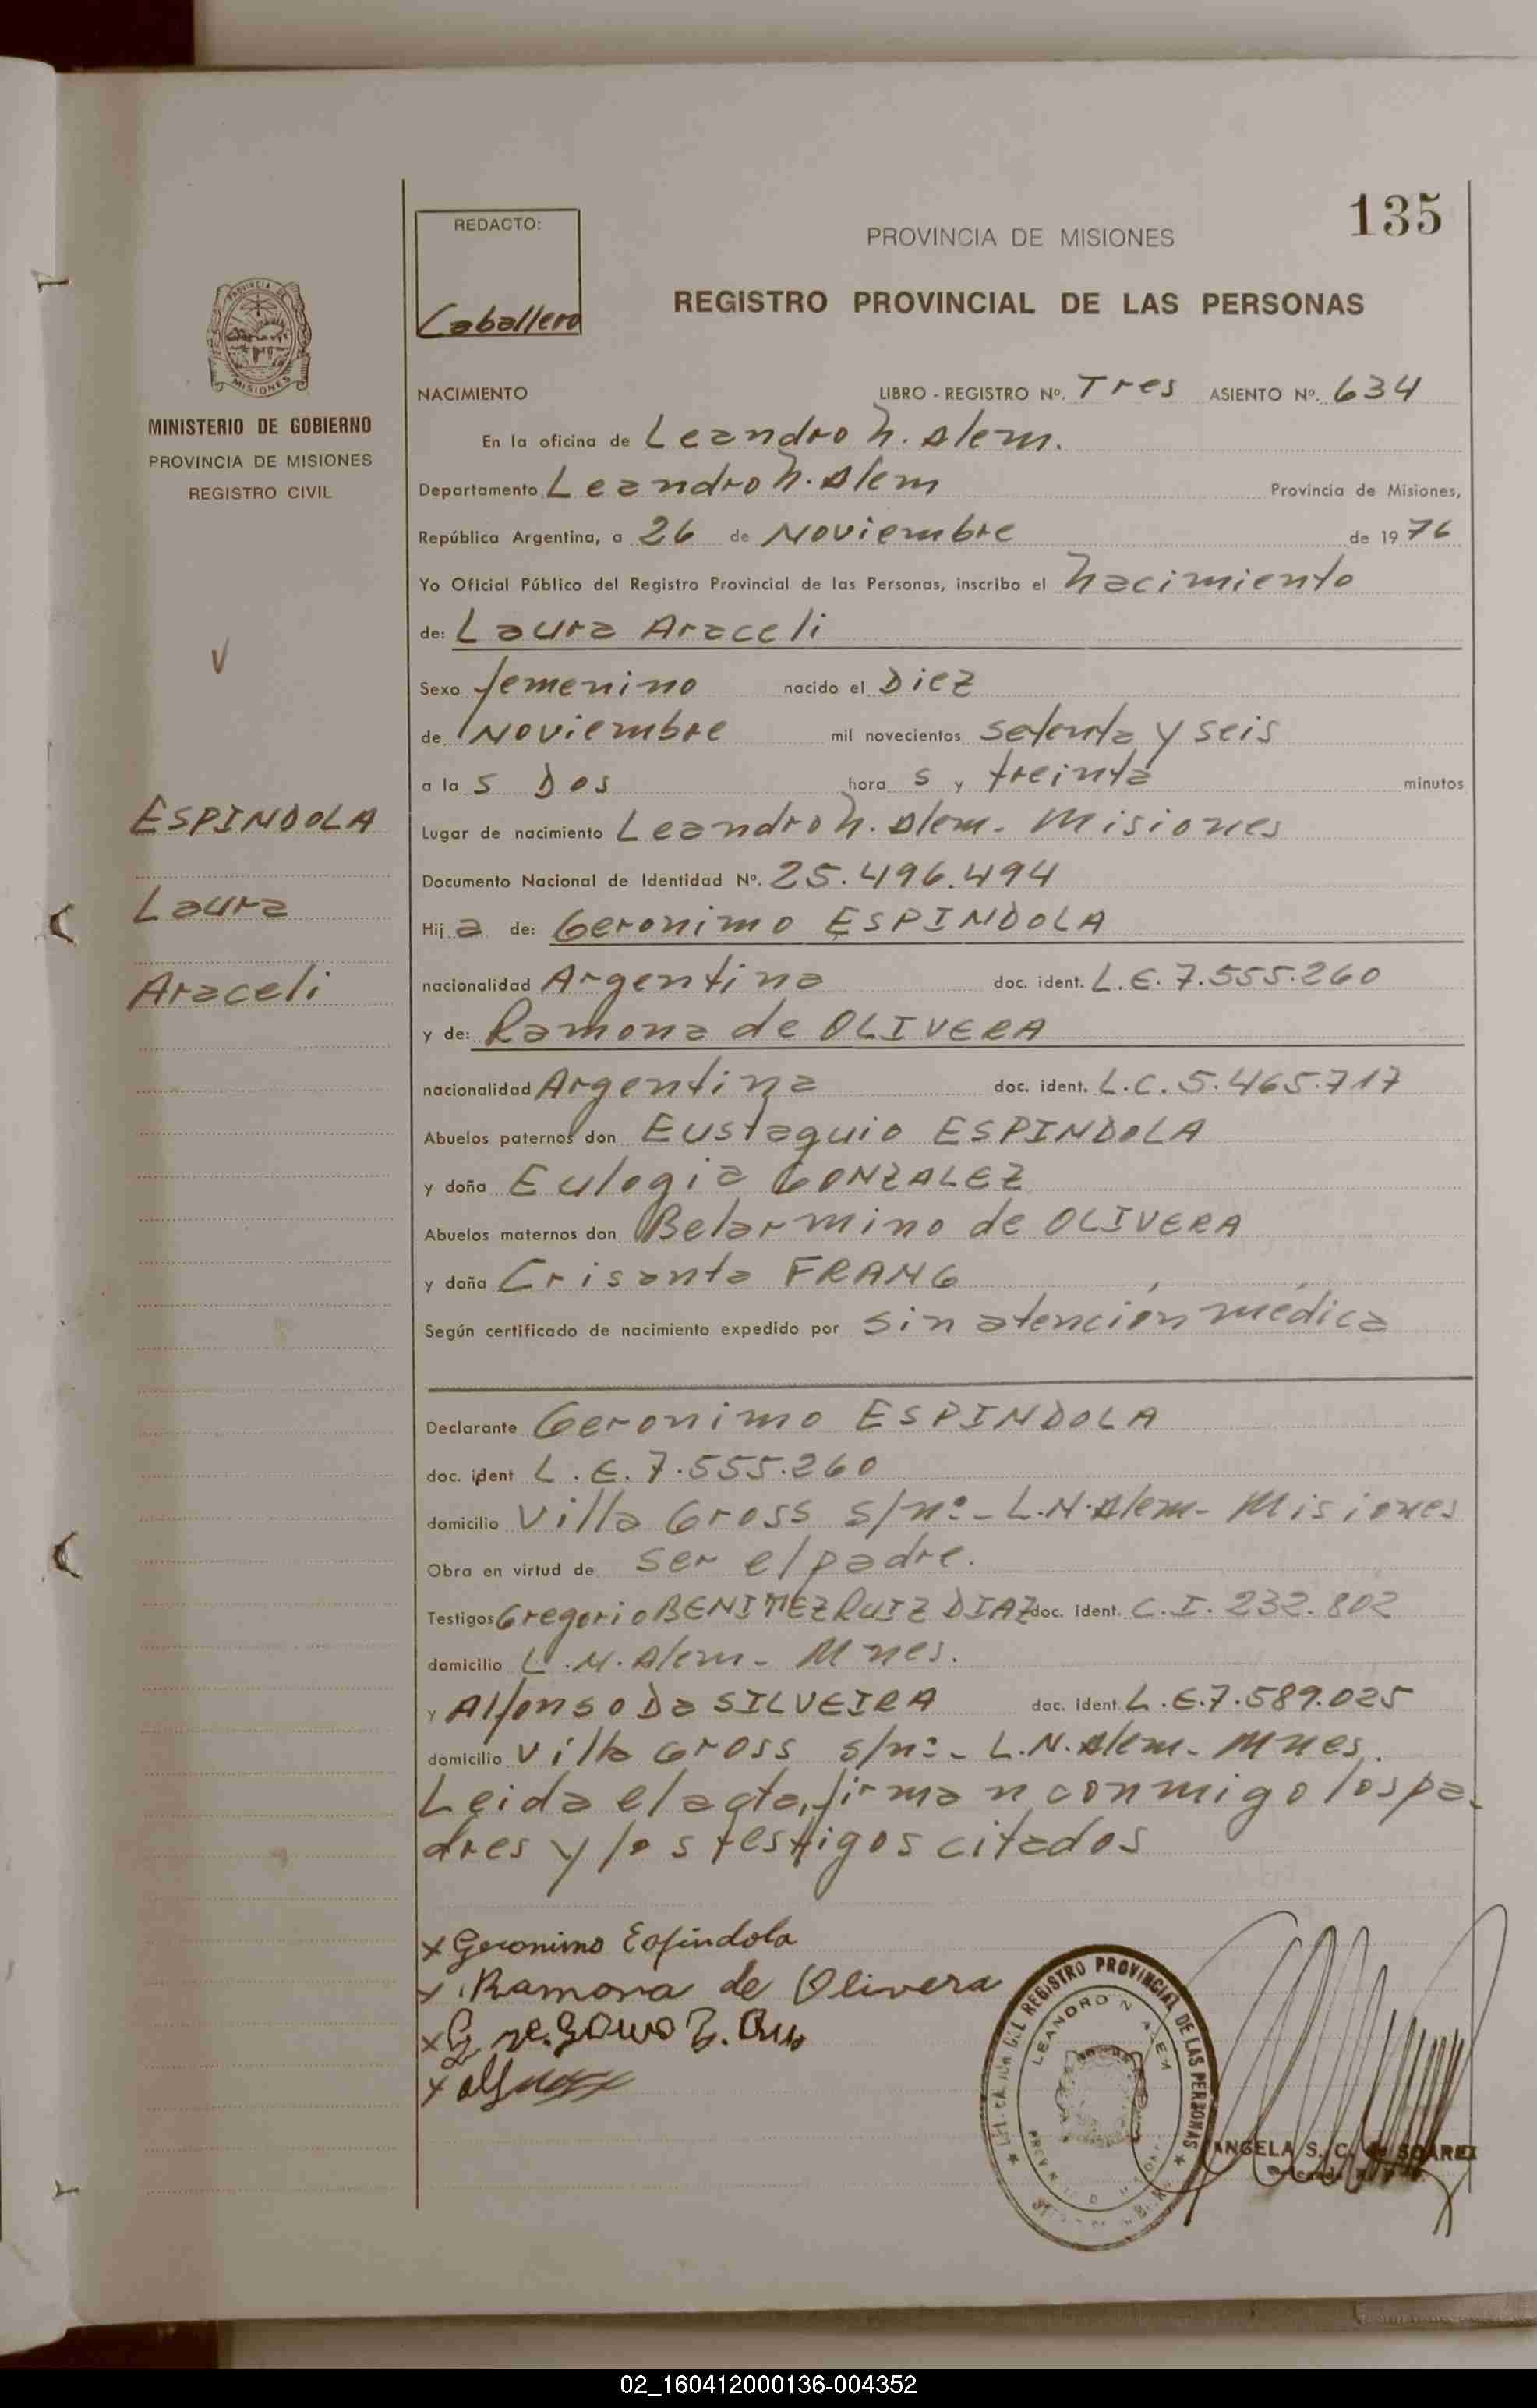 135
REDACTO:
Caballero
PROVINCIA DE MISIONES
REGISTRO PROVINCIAL DE LAS PERSONAS
PROVINCIA DE
MISIONES
MINISTERIO DE GOBIERNO
PROVINCIA DE MISIONES
REGISTRO CIVIL
ESPINDOLA
Laura
Araceli
NACIMIENTO LIBRO - REGISTRO Nº. Tres ASIENTO Nº. 634
En la oficina de Leandro N. Alem.
Departamento Leandro N. Alem Provincia de Misiones,
República Argentina, a 26 de Noviembre de 1976
Yo Oficial Público del Registro Provincial de las Personas, inscribo el nacimiento
de: Laura Araceli
Sexo femenino nacido el Diez
de Noviembre mil novecientos setenta y seis
a la s Dos hora s y treinta minutos
Lugar de nacimiento Leandro N. Alem. Misiones
Documento Nacional de Identidad Nº. 25.496.494
Hij a de: Geronimo ESPINDOLA
nacionalidad Argentina doc. ident. L.E. 7.555.260
y de: Ramona de OLIVERA
nacionalidad Argentina doc. ident. L.C. 5.465.717
Abuelos paternos don Eustaquio ESPINDOLA
y doña Eulogia GONZALEZ
Abuelos maternos don Belarmino de OLIVERA
y doña Crisanta FRANG
Según certificado de nacimiento expedido por sin atención médica
Declarante Geronimo ESPINDOLA
doc. ident L.E. 7.555.260
domicilio Villa Gross s/nº- L.N. Alem- Misiones
Obra en virtud de ser el padre.
Testigos Gregorio BENITEZ RUIZ DIAZ doc. ident. C.I. 232.802
domicilio L.N. Alem- Mnes.
y Alfonso Da SILVEIRA doc. ident. L.E. 7.589.025
domicilio Villa Gross s/nº- L.N. Alem- Mnes.
Leida el acta, firman conmigo los pa-
dres y los testigos citados
x Geronimo Espindola
x Ramona de Olivera
REGISTRO PROVINCIAL DE LAS PERSONAS
LEANDRO N ALEM
ANGELA S. C. de SOAREZ
02_160412000136-004352